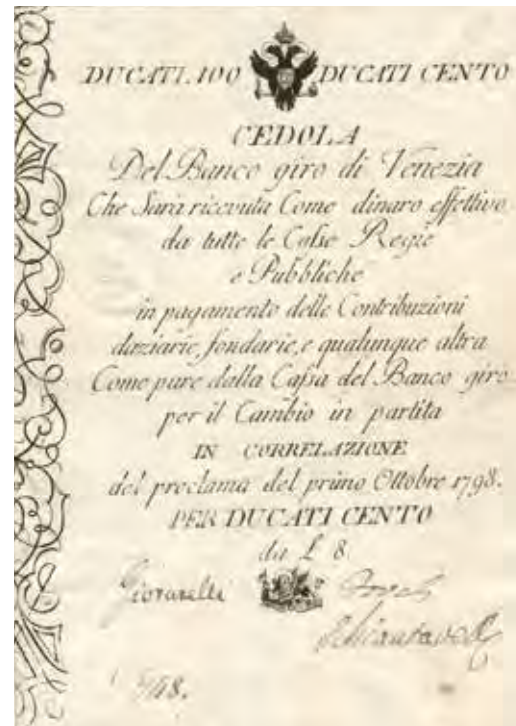 DUCATI. 100 DUCATI CENTO
CEDOLA
Del Banco giro di Venezia
Che Sarà riccvuta Come dinaro effettivo
da tutte le Casse Regie
e Pubbliche
in pagamento delle Contribuzioni
daziarie, fondarie, e qualunque altra
Come pure dalla Cassa del Banco giro
per il Cambio in partita
IN CORRELAZIONE
del proclama del primo Ottobre 1798.
PER DUCATI CENTO
da £ 8